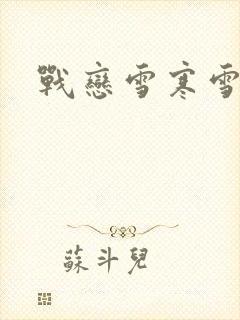 戰戀雪寒雪
蘇斗兒